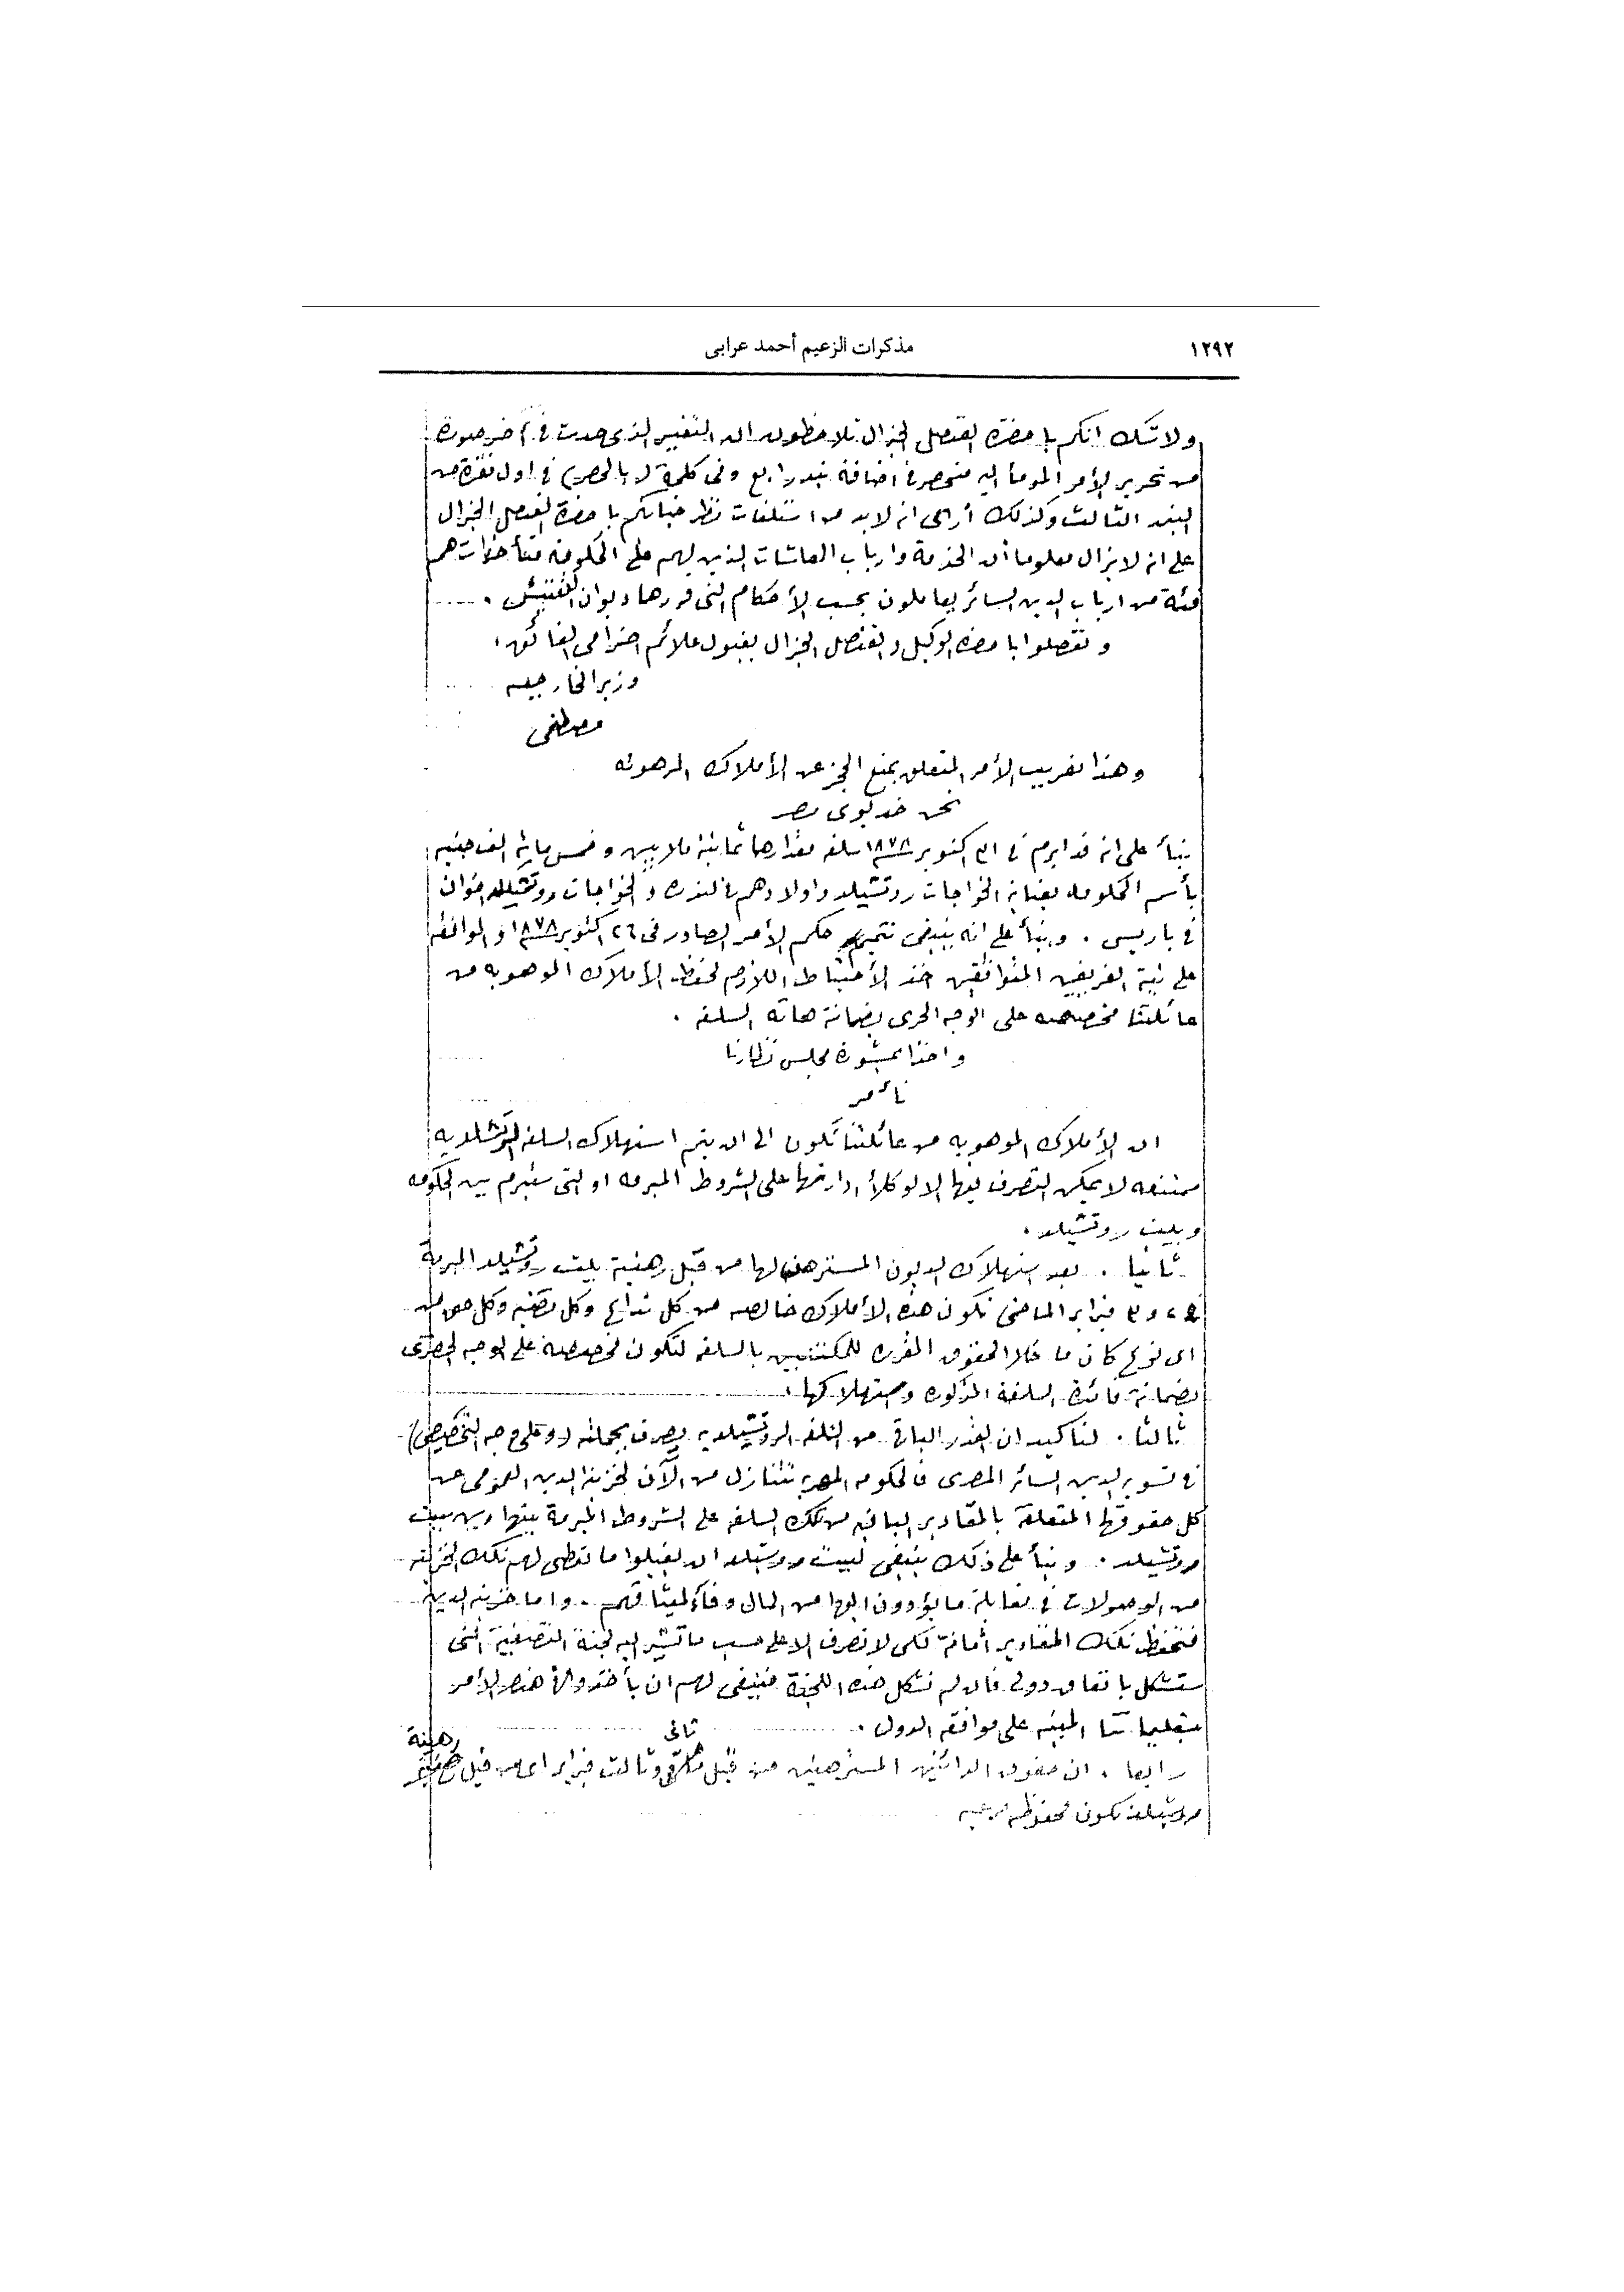 ١٢٩٢
مذكرات الزعيم أحمد عرابى
ولاشك انكم ياحضرة القنصل الجنرال تلاحظون ان التغيير الذى حدث فى آخر صورة
من تحرير الأمر المومأ اليه منحصر فى اضافة بند رابع وفى كلمة (بالحصر) فى اول فقرة من
البند الثالث وكذلك أرى انه لابد من استلفات نظر جنابكم ياحضرة القنصل الجنرال
على انه لايزال معلوما أن الخدمة وارباب المعاشات الذين لهم على الحكومة متأخرات هم
فئة من ارباب الدين السائر يعاملون بحسب الأحكام التى قررها ديوان التفتيش .
وتفضلوا ياحضرة الوكيل والقنصل الجنرال بقبول علائم احترامى الفائق .
وزير الخارجيه
مصطفى
وهذا تعريب الأمر المتعلق بمنع الحجز عن الأملاك المرهونه
نحن خديوى مصر
بنأ على انه قد ابرم فى ٣١ اكتوبر ١٨٧٨ سلفه مقدارها ثمانية ملايين وخمس مائة الف جنيه
بأسم الحكومه بعناية الخواجات روتشيلد واولادهم فى لندره والخواجات روتشيلد اخوان
فى باريس . وبنأ على انه ينبغى تتميم حكم الأمر الصادر فى ٢٦ اكتوبر ١٨٧٨ والموافقة
على نية الفريقين المتوافقين اخذ الأحتياط اللازم لحفظ الأملاك الموهوبه من
عائلتنا مخصصه على الوجه الحرى بضمانة هاته السلفه .
واخذا بمشورة مجلس نظارنا
نأمر
ان الأملاك الموهوبه من عائلتنا تكون الى ان يتم استهلاك السلفه الروتشلديه
ممتنعه لايمكن التصرف فيها الا لوكلأ ادارتها على الشروط المبرمه او التى ستبرم بين الحكومه
وبيت روتشيلد .
ثانيا . بعد استهلاك الديون المسترهن لها من قبل رهنية بيت روتشيلد المبرمة
فى ٢ و ٣ فبراير الماضى تكون هذه الأملاك خالصه من كل تداع وكل وكل حق من
اى نوع كان ما خلا الحقوق المقرره للمكتتبين بالسلفه لتكون مخصصة على الوجه الحصرى
بضمانة فائدة السلفة المذكوره واستهلاكها .
ثالثا . لتأكيد ان القدر الباقى من السلفه الروتشيلديه يصرف بجملته (وعلى وجه التخصيص)
فى تسوية الدين السائر المصرى فالحكومه المصريه تتنازل من الآن لخزينة الدين العمومى عن
كل حقوقها المتعلقة بالمقادير الباقيه من تلك السلفه على الشروط المبرمة بينها وبين بيت
روتشيلد . وبنأ على ذلك ينبغى لبيت روتشيلد ان يقبلوا ما تعطى لهم تلك الخزينه
من الوصولات فى مقابلة ما يؤدون اليها من المال وفأ لميثاقهم . واما خزينة الدين
فتحفظ تلك المقادير أمانة لكى لاتصرف الا على حسب ما تشير اليه لجنة التصفية التى
ستشكل باتفاق دولى فان لم تشكل هذه اللجنة فينبغى لهم ان يأخذوا لهذا الأمر
تعليماتنا المبنيه على موافقة الدول .
رابعا . ان حقوق الدائنين المسترهنين من قبل ثانى وثالث فبراير اى من قبل رهنية
روتشيلد تكون محفوظه مرعيه